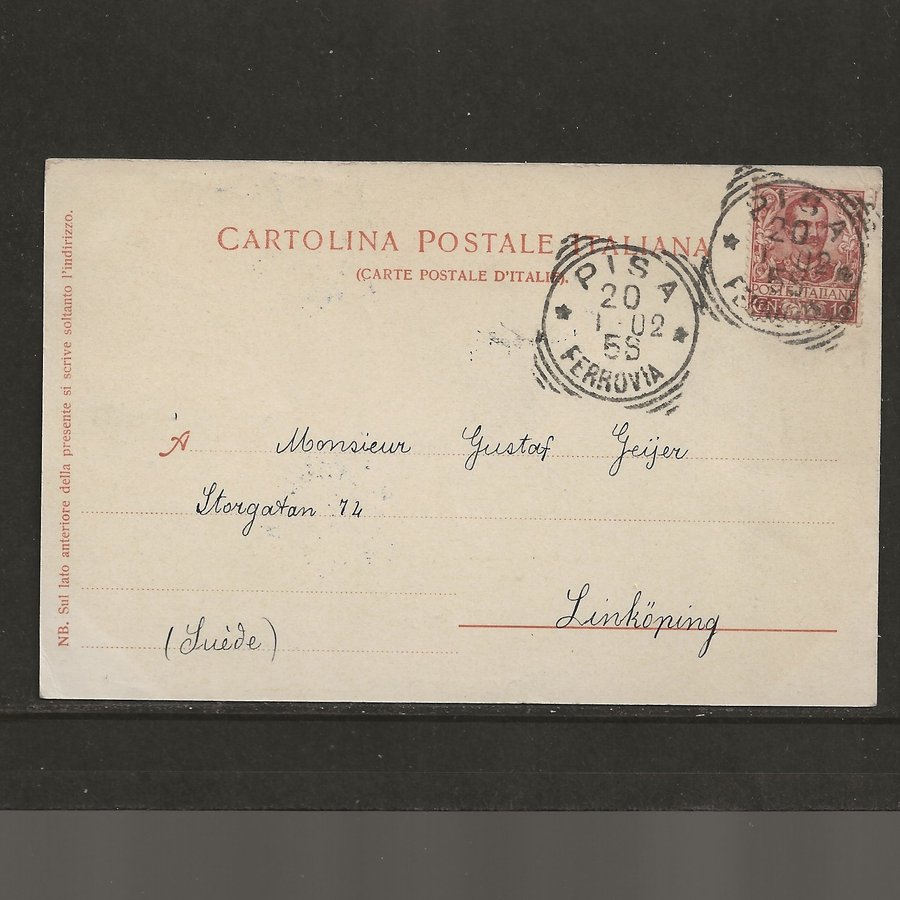 CARTOLINA POSTALE ITALIANA
(CARTE POSTALE D'ITALIE).
PISA
20
1-02
5S
FERROVIA
PISA
20
1-02
POSTE ITALIANE
A Monsieur Gustaf Geijer
Storgatan 74
Linköping
(Suède)
NB. Sul lato anteriore della presente si scrive soltanto l'indirizzo.